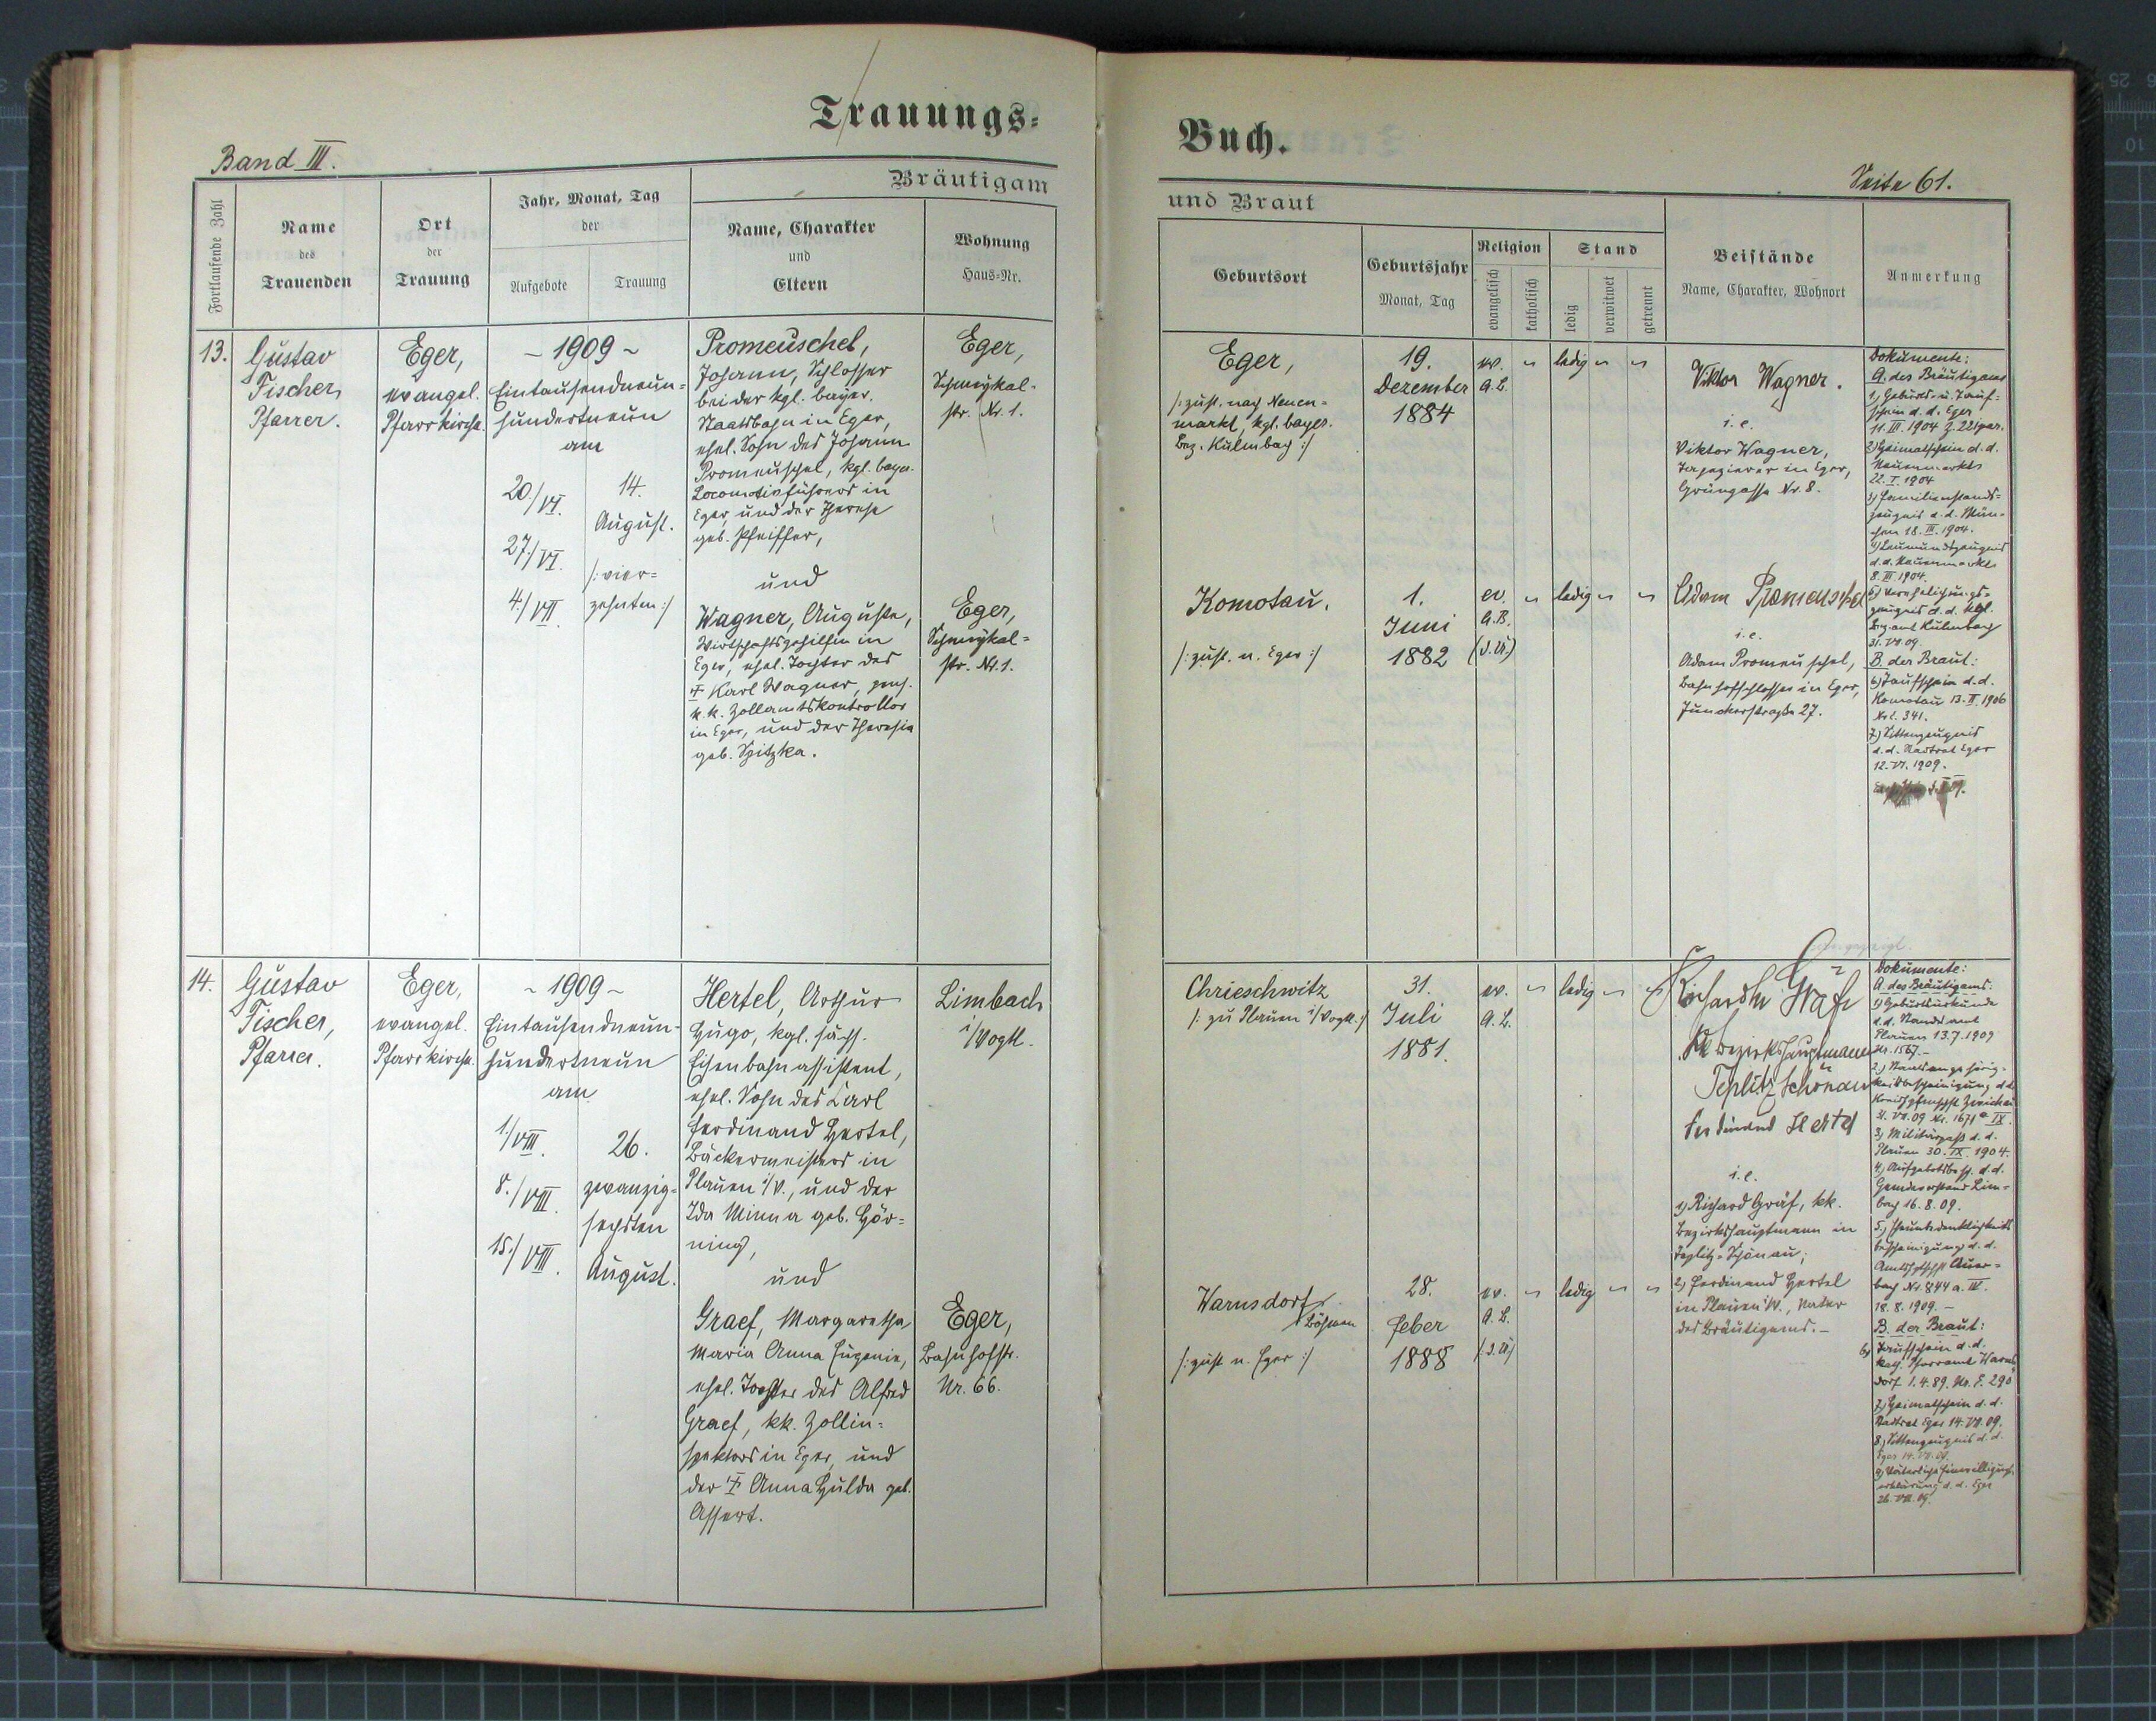 Trauungs-
Buch.
Band III.
Seite 61.
Fortlaufende Zahl
Name
des
Trauenden
Ort
der
Trauung
Jahr, Monat, Tag
der
Aufgebote
Trauung
Bräutigam
und Braut
Name, Charakter
und
Eltern
Wohnung
Haus-Nr.
Geburtsort
Geburtsjahr
Monat, Tag
Religion
evangelisch
katholisch
Stand
ledig
verwitwet
getrennt
Beistände
Name, Charakter, Wohnort
Anmerkung
13.
Gustav
Fischer,
Pfarrer.
Eger,
evangel.
Pfarrkirche.
~ 1909 ~
Eintausendneun-
hundertneun
am
20./VI.
27./VI.
4./VII.
14.
August.
/: vier-
zehnten :/
Promeuschel,
Johann, Schlosser
bei der kgl. bayer.
Staatsbahn in Eger,
ehel. Sohn des Johann
Promeuschel, kgl. bayer.
Locomotivführers in
Eger, und der Therese
geb. Pfeiffer,
und
Wagner, Auguste,
Wirtschaftsgehilfin in
Eger, ehel. Tochter des
† Karl Wagner, pens.
k. k. Zollamtskontrollor
in Eger, und der Theresia
geb. Spitzka.
Eger,
Schmeykal-
str. Nr. 1.
Eger,
Schmeykal-
str. Nr. 1.
Eger,
/: zust. nach Neuen-
markt, kgl. bayer.
Bez. Kulmbach :/
19.
Dezember
1884
ev.
A. B.
ledig
Komotau.
/: zust. n. Eger :/
1.
Juni
1882
ev.
A. B.
(s. Ü.)
ledig
Viktor Wagner.
i. e.
Viktor Wagner,
Tapezierer in Eger,
Grüngasse Nr. 8.
Adam Promeuschel
i. e.
Adam Promeuschel,
Bahnhofschlosser in Eger,
Junckerstraße 27.
Dokumente:
A. des Bräutigams
1) Geburts- u. Tauf-
schein d. d. Eger
11. III. 1904 Z. 221 par.
2) Heimatschein d. d.
Neuenmarkt
22. I. 1904
3) Familienstands-
zeugnis d. d. Mün-
chen 18. III. 1904.
4) Leumundszeugnis
d. d. Neuenmarkt
8. III. 1904.
5) Verehelichungs-
zeugnis d. d. kgl.
Bez.amt Kulmbach
31. VII. 09.
B. der Braut:
6) Taufschein d. d.
Komotau 13. II. 1906
Nr. E. 341.
7) Sittenzeugnis
d. d. Stadtrat Eger
12. VI. 1909.
14.
Gustav
Fischer,
Pfarrer.
Eger,
evangel.
Pfarrkirche.
~ 1909 ~
Eintausendneun-
hundertneun
am
1./VIII.
8./VIII.
15./VIII.
26.
zwanzig-
sechsten
August.
Hertel, Arthur
Hugo, kgl. sächs.
Eisenbahnassistent,
ehel. Sohn des Karl
Ferdinand Hertel,
Bäckermeisters in
Plauen i/V., und der
Ida Minna geb. Hör-
ning,
und
Graef, Margaretha,
Maria Anna Eugenie,
ehel. Tochter des Alfred
Graef, kk. Zollin-
spektors in Eger, und
der † Anna Hulda geb.
Assert.
Limbach
i/Vogtl.
Eger,
Bahnhofstr.
Nr. 66.
Chrieschwitz
/: zu Plauen i/Vogtl. :/
31.
Juli
1881.
ev.
A. B.
ledig
Warnsdorf
Böhmen
/: zust n. Eger :/
28.
Feber
1888
ev.
A. B.
(s. Ü.)
ledig
Gräf
kk Bezirkshauptmann
Teplitz Schönau
Ferdinand Hertel
i. e.
1) Richard Gräf, kk.
Bezirkshauptmann in
Teplitz-Schönau;
2) Ferdinand Hertel
in Plauen i/V., Vater
des Bräutigams. –
Dokumente:
A. des Bräutigams:
1) Geburtsurkunde
d. d. Standesamt
Plauen 13. 7. 1909
Nr. 1567. –
2) Staatsangehörig-
keitsbescheinigung d. d.
Kreishptmsschft Zwickau
31. VII. 09 Nr. 1671 a IX.
3) Militärpaß d. d.
Plauen 30. IX. 1904.
4) Aufgebotsbesch. d. d.
Gemeindevorstand Lim-
bach 16. 8. 09.
5) Eheunbedenklichkeits
bescheinigung d. d.
Amtshptschft Auer-
bach Nr. 844 a. IV.
18. 8. 1909. –
B. der Braut:
6) Taufschein d. d.
kath. Pfarramt Warns
dorf 1. 4. 89. Nr. E. 290
7) Heimatschein d. d.
Stadtrat Eger 14. VII. 09.
8) Sittenzeugnis d. d.
Eger 14. VII. 09.
9) Väterliche Einwilligungs
erklärung d. d. Eger
26. VII. 09.